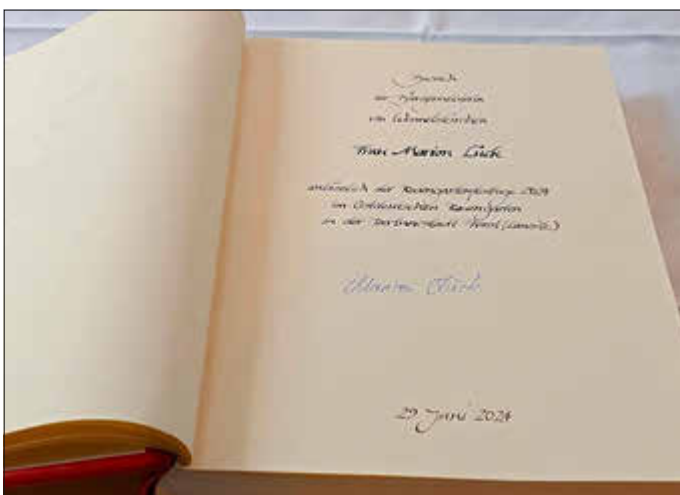 Besuch
der Bürgermeisterin
von Wermelskirchen
Frau Marion Lück
anlässlich der Rosengartenfesttage 2024
im Ostdeutschen Rosengarten
in der Partnerstadt Forst (Lausitz)
Marion Lück
29. Juni 2024